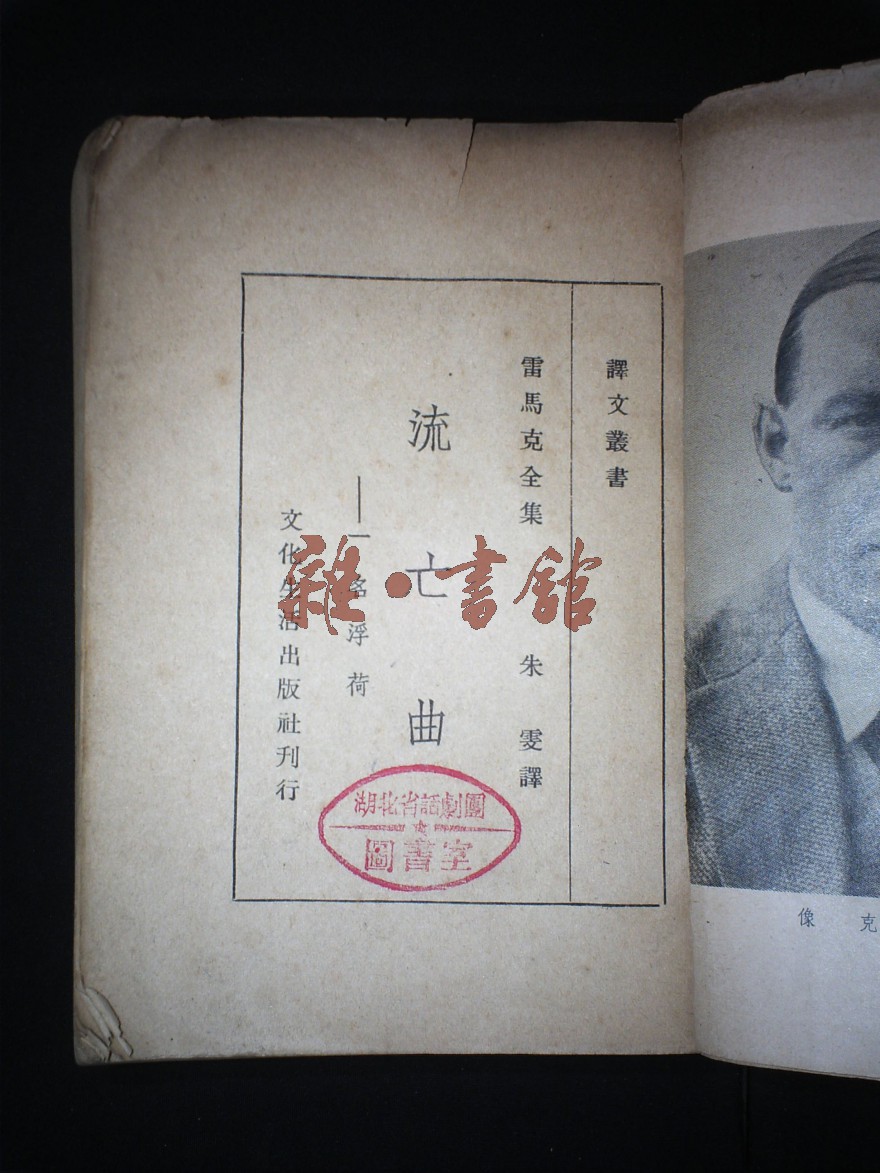 譯文叢書
雷馬克全集 朱雯譯
流亡曲
——一名浮荷
文化生活出版社刊行
湖北省話劇團
圖書室
雜·書館
像 克